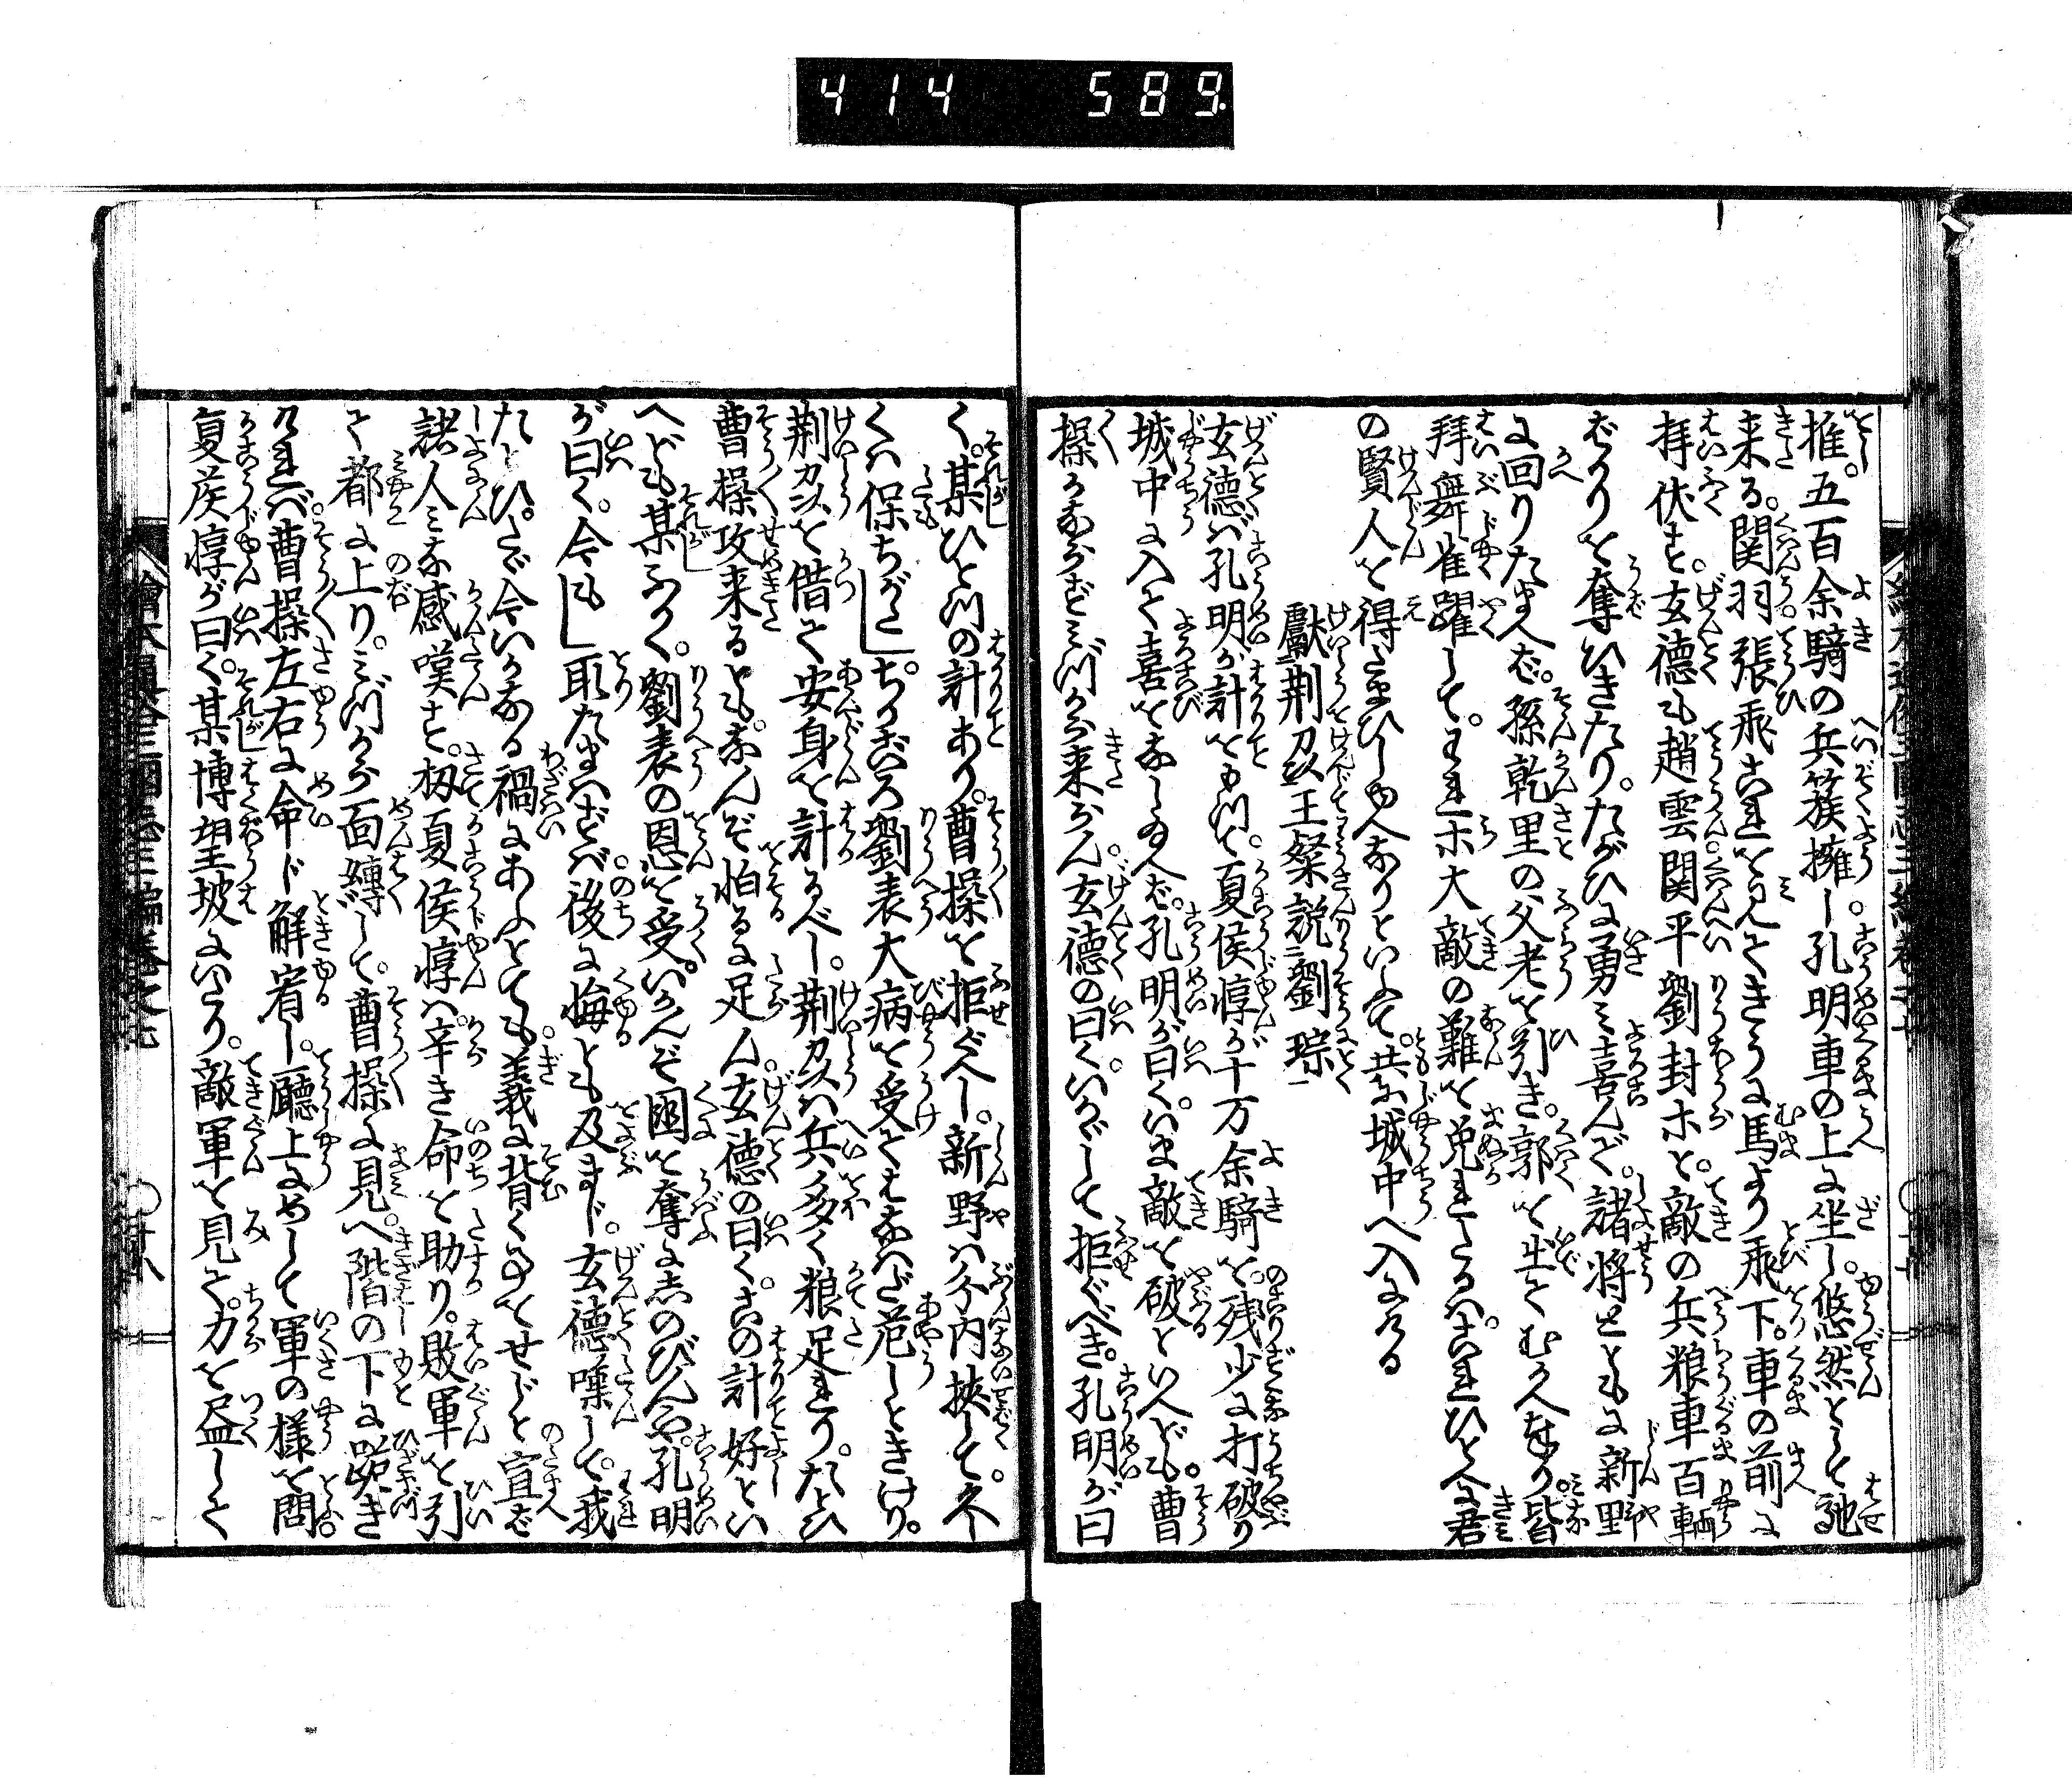 414 589.
推。五百余騎の兵簇擁し。孔明車の上に坐し。悠然として馳
来る。関羽張飛これを見てきうに馬より飛下。車の前に
拝伏す。玄徳も趙雲関平劉封ホと。敵の兵粮車百輌
ばかりを奪ひきたり。たがひに勇み喜んで。諸将とともに新野
に回りたまへば。孫乾里の父老を引き。郭を出てむかへ奉り。皆
拜舞雀躍して。われホ大敵の難を免れたるハ。これひとへに君
の賢人を得たまひしゆへなりといふて。共に城中へ入にける
獻荊州王粲説劉琮
玄徳バ孔明が計をもつて。夏侯惇が十万余騎を。残少に打破り
城中に入て喜をなし給へば。孔明が曰く。いま敵を破といへども。曹
操かならずみづから来らん。玄徳の曰く。いかゞして拒ぐべき。孔明が曰
く。某ひとつの計あり。曹操を拒ぐべし。新野ハ分内挾して。久
くハ保ちがたし。ちかごろ劉表大病を受てはなハだ危しときけり。
荊州を借て安身を計るべし。荊州ハ兵多く粮足れり。たとひ
曹操攻来るとも。なんぞ怕るに足ん。玄徳の曰く。この計好とい
へども某ふかく。劉表の恩を受。いかんぞ國を奪にしのびんや。孔明
が曰く。今もし取たまハずバ後に悔とも及まじ。玄徳嘆して。我
たとひ。たゞ今いかなる禍にあふとても。義に背く事をせじと宣バ
諸人みな感嘆す。扨夏侯惇ハ。辛き命を助り。敗軍を引
て都に上り。みづから面縛して。曹操に見へ階の下に跪き
ければ。曹操左右に命ド解宥し。廳上にめして軍の様を問。
夏侯惇が曰く。某博望坡にいたり。敵軍を見て。力を盡して